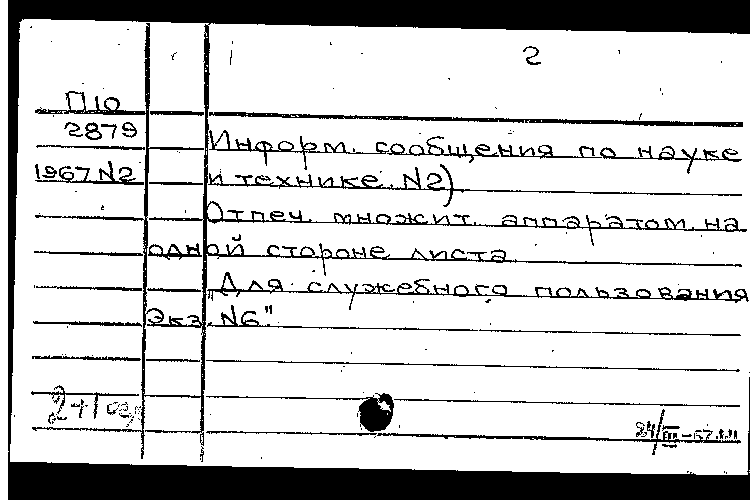 2
П10
2879
1967 N2
Информ. сообщения по науке
и технике. N2).
Отпеч. множит. аппаратом на
одной стороне листа.
"Для служебного пользования
Экз. N6"
24/III-67